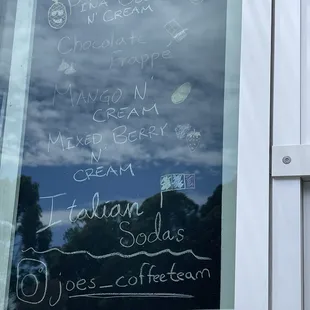 Piña Co
N' Cream
Chocolate
Frappé
Mango N'
Cream
Mixed Berry
N'
Cream
Italian
Sodas
joes_coffeeteam